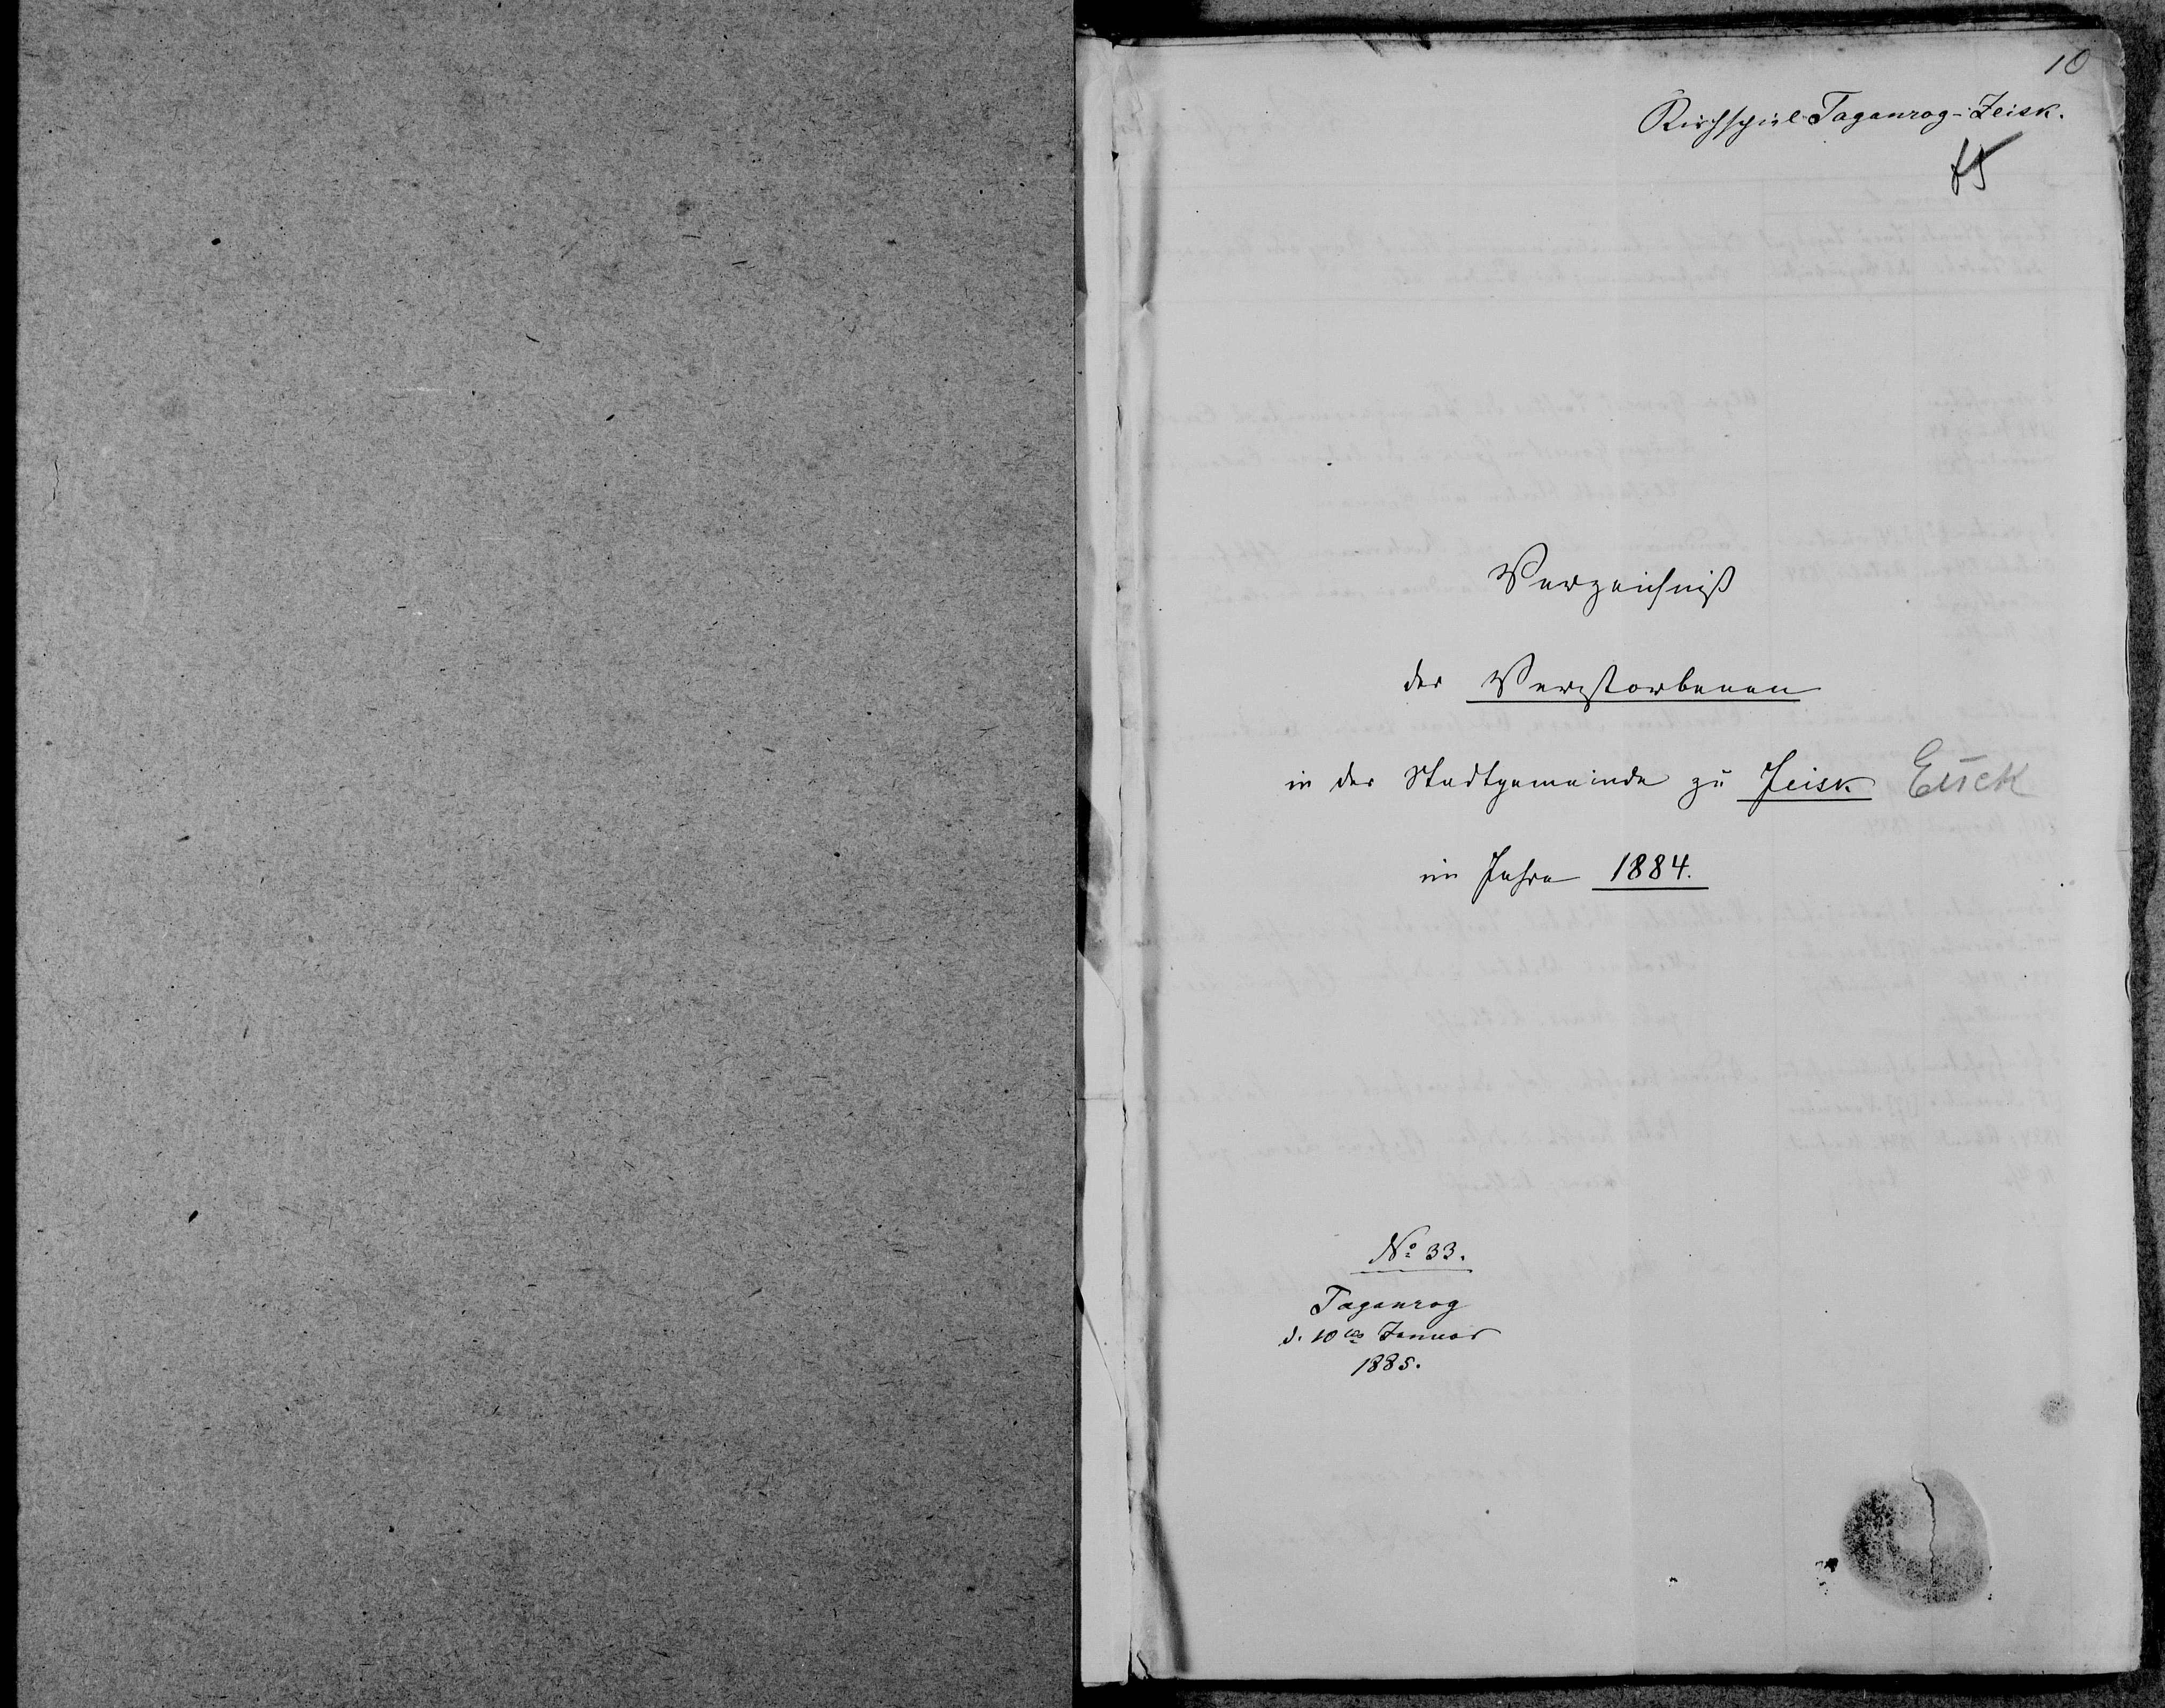 10
Kirchspiel Taganrog-Jeisk.
Verzeichniß
der Verstorbenen
in der Stadtgemeinde zu Jeisk Еіск
im Jahre 1884.
No 33.
Taganrog
d. 10ten Januar
1885.